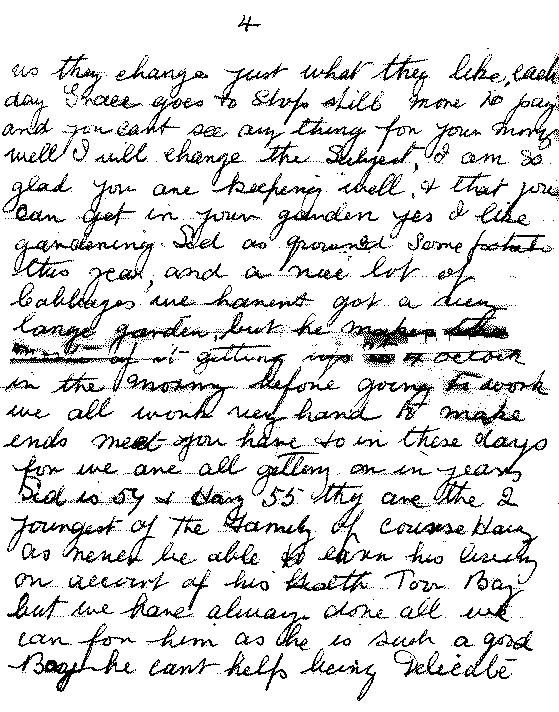 4
us they change just what they like, each
day Grace goes to Shop still more to pay
and you cant see any thing for your money
well I will change the Subject, I am so
glad you are keepeing well, & that you
can get in your garden yes I like
gardening. Sid as grouned some potato
this year, and a nice lot of
Cabbages, we havent got a very
large garden, but he makes the
most of it getting up 5 o clock
in the morning before going to work
we all work very hard to make
ends meet you have to in these days
for we are all getting on in years
Sid is 59 & Harry 55 they are the 2
youngest of the Family of course Harry
as never be able to earn his living
on account of his Health Poor Boy
but we have always done all we
can for him as he is such a good
Boy he cant help being Delicate